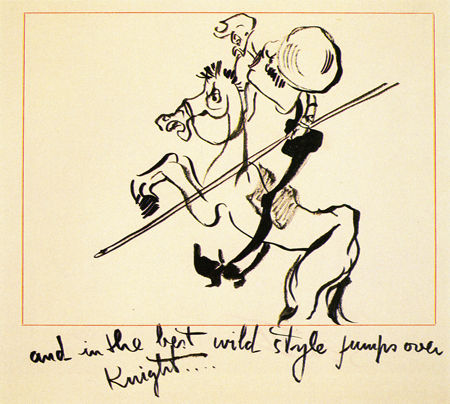 and in the best wild style jumps over
Knight....